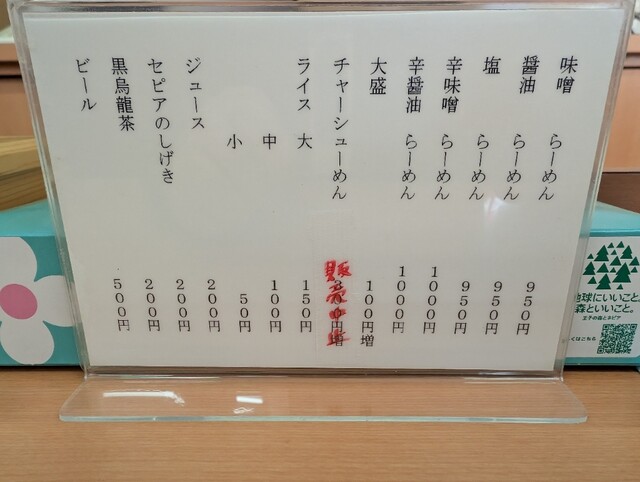 味噌 らーめん 950円
醤油 らーめん 950円
塩 らーめん 950円
辛味噌 らーめん 1000円
辛醤油 らーめん 1000円
大盛 100円増
チャーシューめん 円増
販売中止
ライス 大 150円
中 100円
小 50円
ジュース 200円
セピアのしげき 200円
黒烏龍茶 200円
ビール 500円
地球にいいこと。
森といいこと。
王子の森とネピア
くはこちら